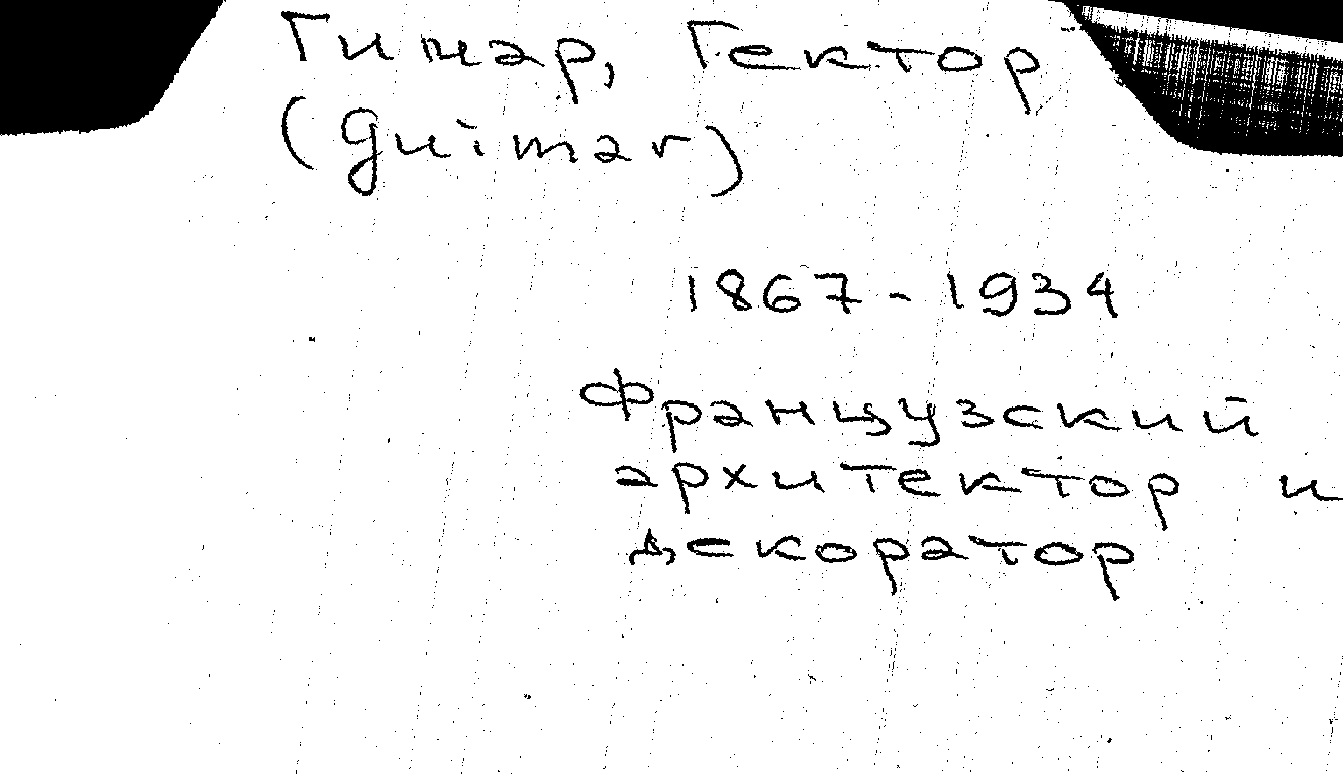 Гимар, Гектор
(Guimar)
1867-1934
Французский
архитектор и
декоратор